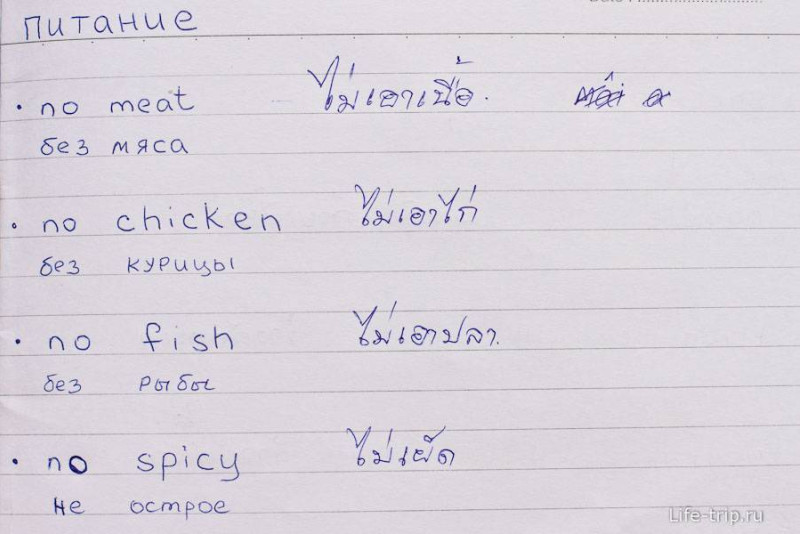 питание
• no meat ไม่เอาเนื้อ.
без мяса
• no chicken ไม่เอาไก่
без курицы
• no fish ไม่เอาปลา.
без рыбы
• no spicy ไม่เผ็ด
не острое
Life-trip.ru